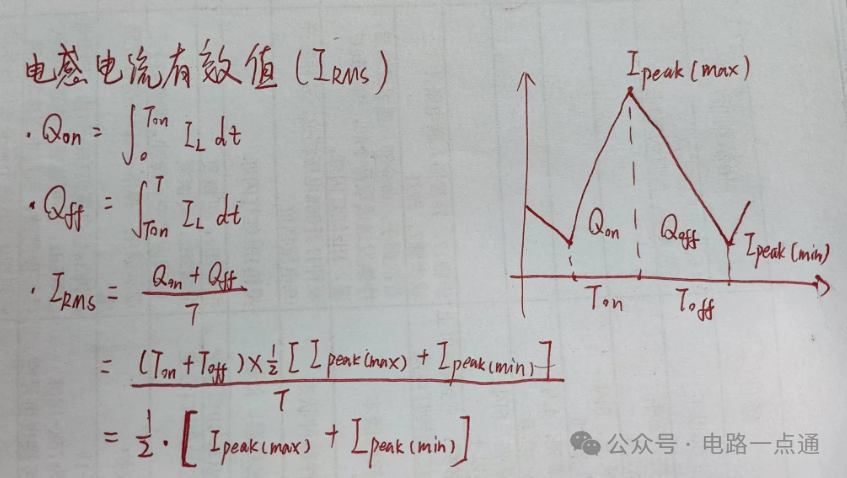 电感电流有效值(I_RMS)
· Q_on = ∫_0^Ton I_L dt
· Q_ff = ∫_Ton^T I_L dt
· I_RMS = (Q_on + Q_ff) / T
= (T_on + T_off) × 1/2 [I_peak(max) + I_peak(min)] / T
= 1/2 · [I_peak(max) + I_peak(min)]
I_peak(max)
Q_on Q_off
I_peak(min)
T_on T_off
公众号 · 电路一点通